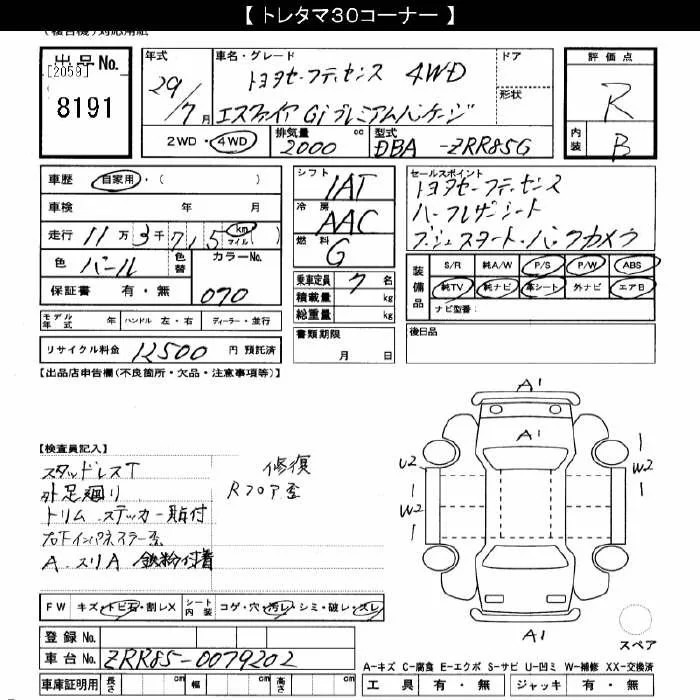 【 トレタマ30コーナー 】
出品No.
[2059]
8191
年式
29/7月
車名・グレード
トヨタセーフティセンス 4WD
エスクァイア Gi プレミアムパッケージ
ドア
形状
評価点
R
内装
B
2WD・4WD
排気量
2000 cc
型式
DBA -ZRR85G
車歴 自家用・( )
車検 年 月
走行 11万3千715 km マイル( )
色 パール
色替
カラーNo.
070
保証書 有・無
シフト
IAT
冷房
AAC
燃料
G
乗車定員 7名
積載量 kg
総重量 kg
書類期限
月 日
セールスポイント
トヨタセーフティセンス
ハーフレザーシート
プッシュスタート・バックカメラ
装備品
S/R 純A/W P/S P/W ABS
純TV 純ナビ 革シート 外ナビ エアB
ナビ型番:
モデル年式 年 ハンドル 左・右 ディーラー・並行
リサイクル料金 12500 円 預託済
後日品
【出品店申告欄(不良箇所・欠品・注意事項等)】
【検査員記入】
スタッドレスT
外足廻り
トリム ステッカー貼付
A.スリA 鉄粉付着
修復
Rフロア歪
A1
A1
U2
1
W2
1
W2
1
1
A1
スペア
FW キズ・トビ石・割レX
シート内装 コゲ・穴・汚レ・シミ・破レ・スレ
登録No.
車台No. ZRR85-0079202
車庫証明用 長さ cm 幅 cm 高さ cm
A-キズ C-腐食 E-エクボ S-サビ U-凹ミ W-補修 XX-交換済
工具 有・無 ジャッキ 有・無